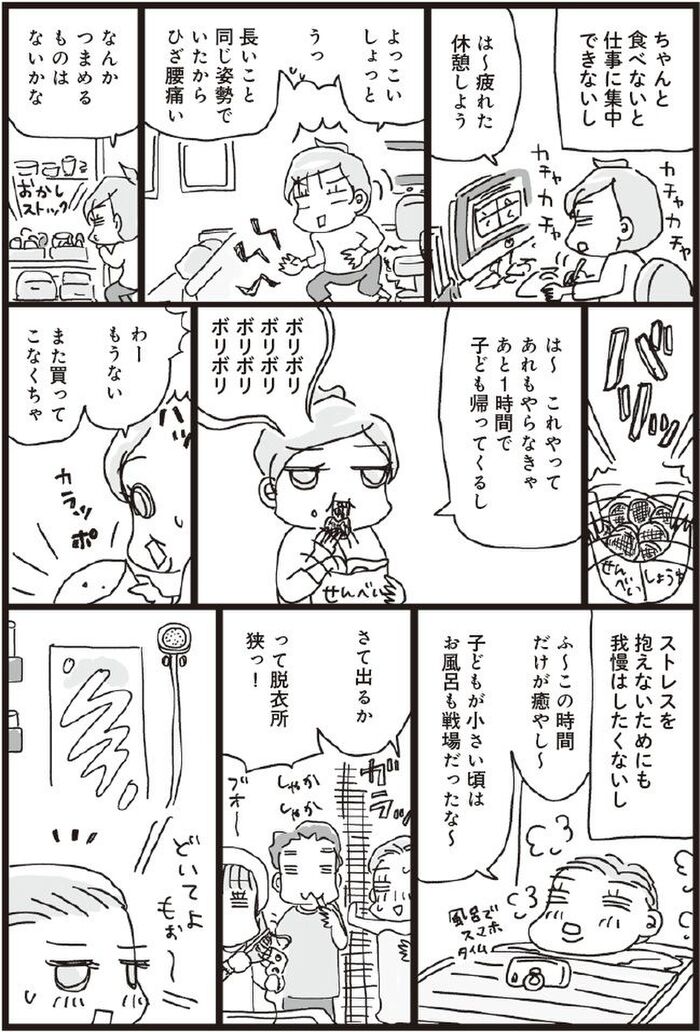 ちゃんと
食べないと
仕事に集中
できないし
は～疲れた
休憩しよう
カチャカチャ
カチャカチャ
よっこい
しょっと
うっ
長いこと
同じ姿勢で
いたから
ひざ腰痛い
なんか
つまめる
ものは
ないかな
おかし
ストック
バリッ
せんべい
しょうゆ
は～　これやって
あれもやらなきゃ
あと1時間で
子ども帰ってくるし
ボリボリ
ボリボリ
ボリボリ
ボリボリ
せんべい
わー
もうない
また買って
こなくちゃ
ハッ
カラッポ
ストレスを
抱えないためにも
我慢はしたくないし
ふ～この時間
だけが癒やし～
子どもが小さい頃は
お風呂も戦場だったな～
風呂で
スマホ
タイム
さて出るか
って脱衣所
狭っ！
ガラッ
しゃか
しゃか
ブオー
どいてよ
もぉ～